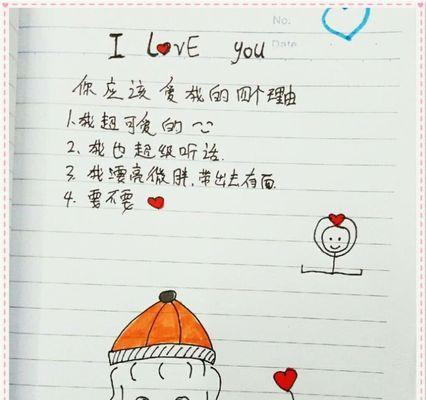 No.
Date
I LOVE you
你应该爱我的四个理由
1.我超可爱的
2.我也超级听话.
3.我漂亮微胖,带出去有面
4.要不要